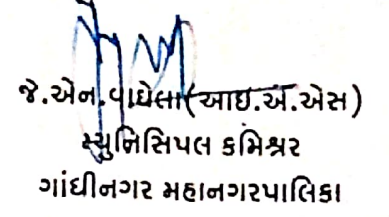 જે.એન.વાઘેલા(આઇ.એ.એસ)
મ્યુનિસિપલ કમિશ્નર
ગાંધીનગર મહાનગરપાલિકા